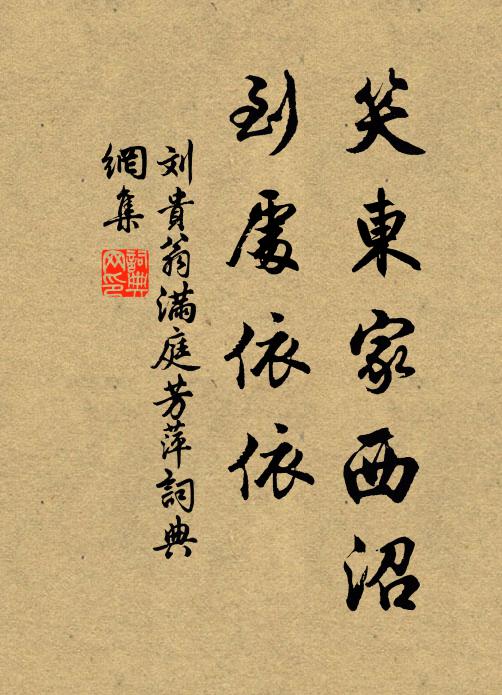 笑東家西沼
到處依依
刘貴翁滿庭芳萍詞典
網集
詞典
网印